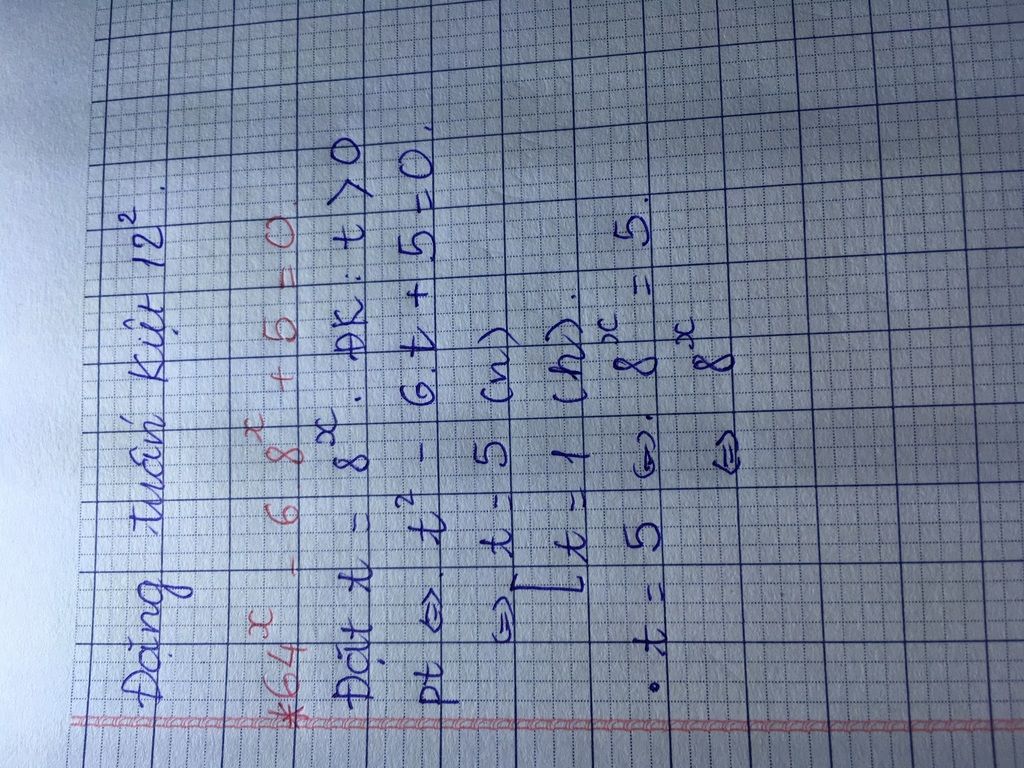 Đặng Tuấn Kiệt 12²
*64ˣ - 6.8ˣ + 5 = 0.
Đặt t = 8ˣ. ĐK: t > 0
pt ⇔ t² - 6.t + 5 = 0.
⇔ [ t = 5 (n)
t = 1 (n).
• t = 5 ⇔ 8ˣ = 5.
⇔ 8ˣ